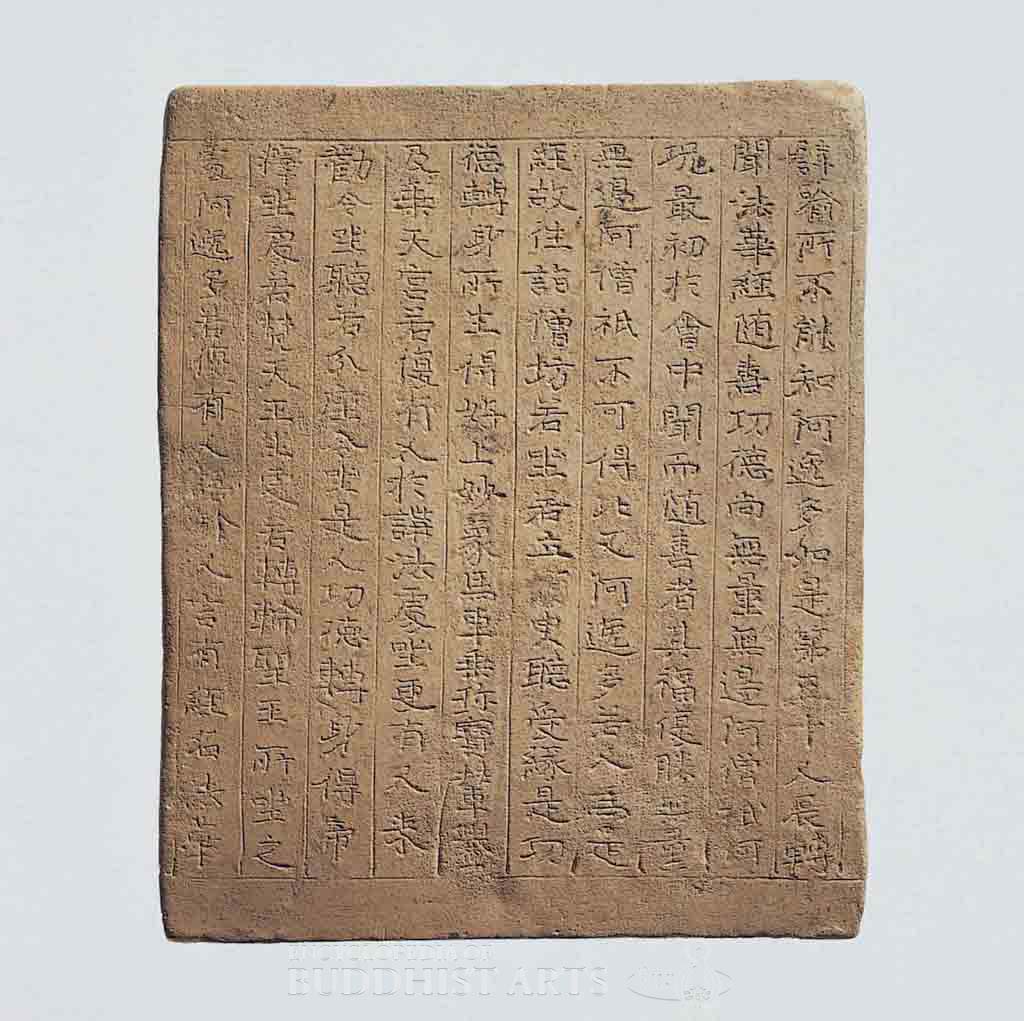 譬喻所不能知阿逸多如是第五十人展轉
聞法華經随喜功德尚無量無邊阿僧祇何
況最初於會中聞而随喜者其福復勝無量
無邊阿僧祇不可得比又阿逸多若人為是
經故往詣僧坊若坐若立須臾聽受緣是功
德轉身所生得好上妙象馬車乘珍寶輦轝
及乘天宮若復有人於講法處坐更有人來
勸令坐聽若分座令坐是人功德轉身得帝
釋坐處若梵天王坐處若轉輪聖王所坐之
處阿逸多若復有人語人言有經名法華
ENCYCLOPEDIA OF
BUDDHIST ARTS